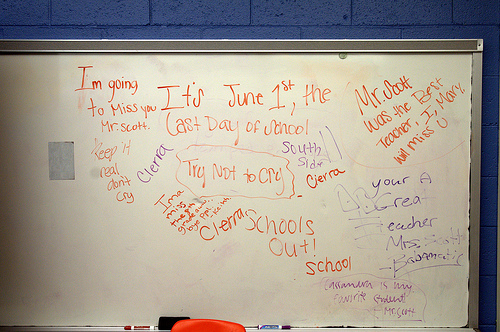 I'm going
to Miss you
Mr. Scott.
It's June 1st, the
Last Day of School
Mr. Scott
was the Best
Teacher, I, Mary,
will miss U
Keep it
real
don't
cry
Cierra
Try Not to Cry
South
Side
Cierra
Ima
miss
Cierra
Schools
Out!
school
your A
Great
Teacher
Mrs. Scott
Cassandra is my
favorite student
Mr. Scott